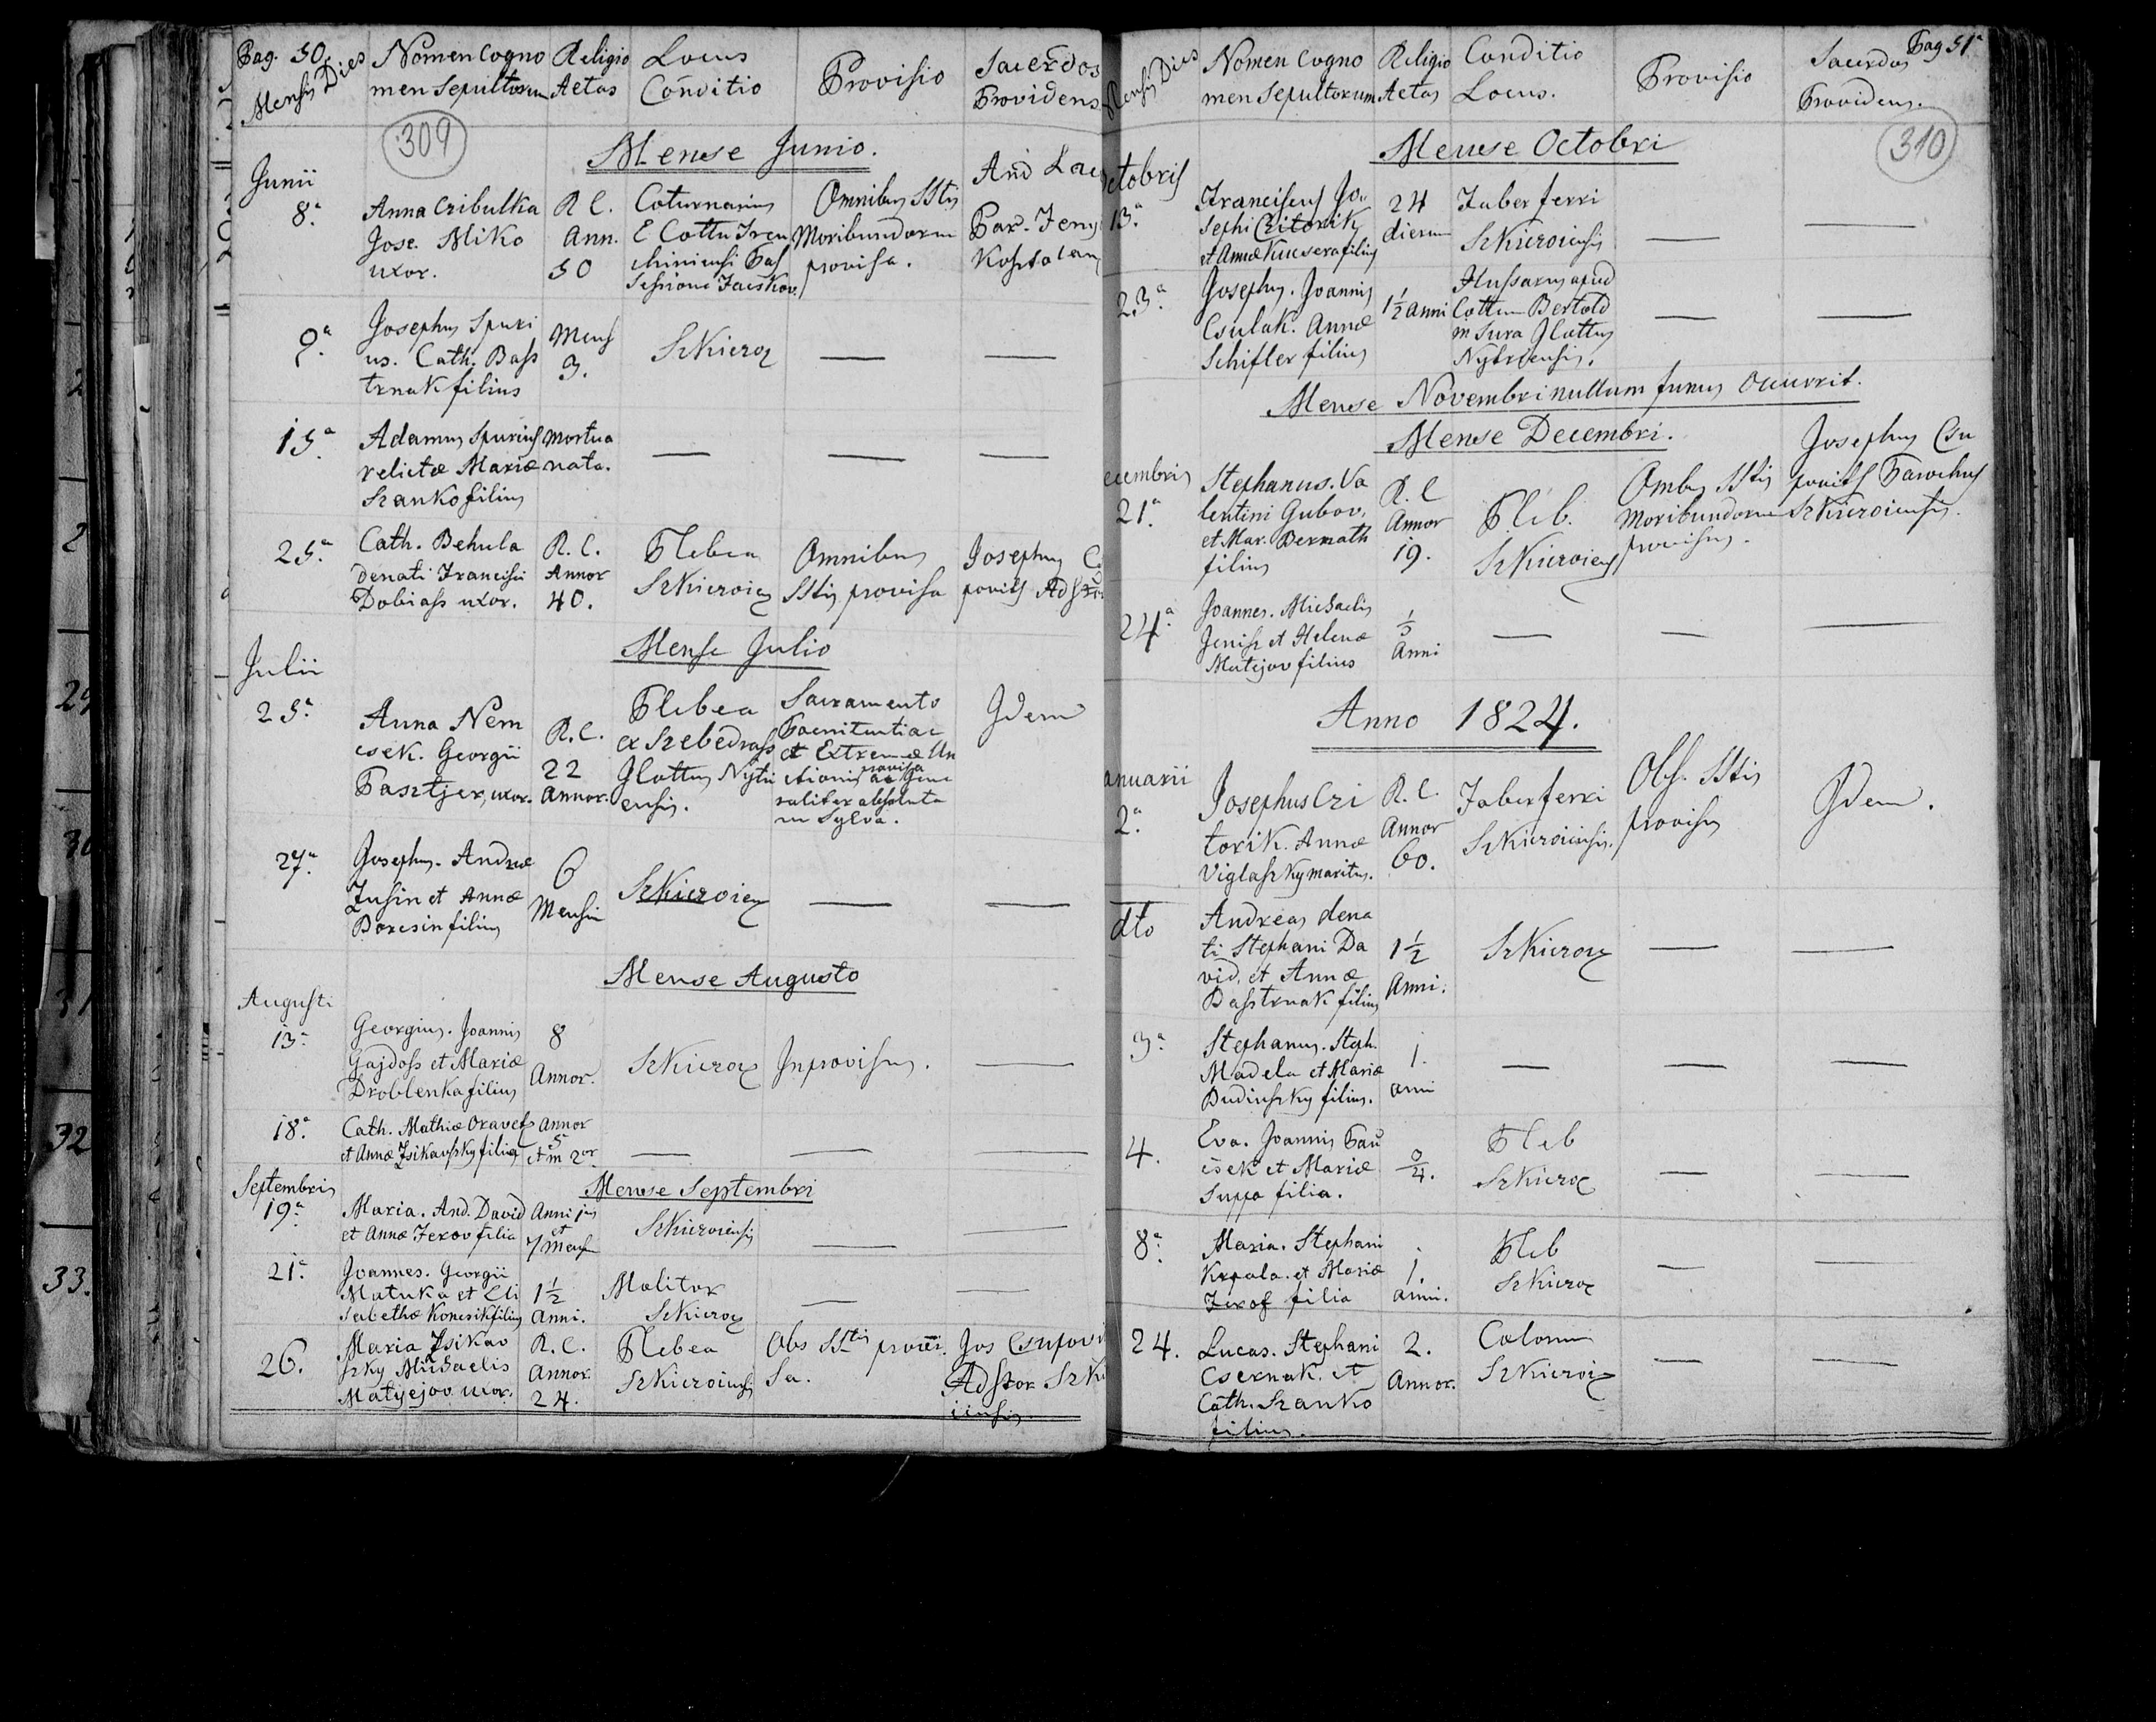 Pag. 50.
Mensis Dies
Nomen Cogno
men Sepultorum
Religio
Aetas
Locus
Conditio
Provisio
Sacerdos
Providens
309
Mense Junio.
Junii
8ª
Anna Czibulka
Jose. Miko
uxor.
R C.
Ann.
50
Coturnarius
E Cottu Tren
chiniensi Pos
sessione
Omnibus SStis
Moribundorum
provisa.
And
Par.
9ª
Josephus Spuri
us. Cath. Bass
trnak filius
Mens
3.
Szkicroz
—
—
15ª
Adamus Spurius
relictæ Mariæ
Szanko filius
Mortua
nata.
—
—
—
25ª
Cath. Behula
denati Francisci
Dobiass uxor.
R. C.
Annor
40.
Plebea
Szkicroien
Omnibus
SStis provisa
Josephus
Mense Julio
Julii
25ª
Anna Nem
csek. Georgii
Pasztjer, uxor.
R. C.
22
Annor.
Plebea
ex Szebedrass
Jlottus Nytri
ensis.
Sacramento
Paenitentiae
et Extremæ Un
ctionis provisa ac Gene
raliter absoluta
in Sylva.
Jdem
27ª
Josephus. Andreæ
Zusin et Annæ
Boresin filius
6
Mensiu
Szkicroien
—
—
Mense Augusto
Augusti
13ª
Georgius. Joannis
Gajdoss et Mariæ
Droblenka filius
8
Annor.
Szkicroz
Jnprovisus.
—
18ª
Cath. Mathiæ Oravets
et Annæ Zsikavszky filia
Annor
5
et m 2or
—
—
—
Septembris
Mense Septembri
19ª
Maria. And. David
et Annæ Ferov filia
Anni 1us
et
7 Mens
Szkicroiensis
—
—
21ª
Joannes. Georgii
Matuka et Eli
sabethæ Konesik filius
1½
Anni.
Molitor
Szkicroz
—
—
26.
Maria Zsikav
szky Michaelis
Matyejov uxor.
R. C.
Annor.
24.
Plebea
Szkicroiensis
Obs SStis provi
sa.
Jos Csupov
Adstor Szki
iensis.
Pag 51ª
Mensis Dies
Nomen Cogno
men Sepultorum
Religio
Aetas
Conditio
Locus.
Provisio
Sacerdos
Providens.
310
Mense Octobri
ctobris
13ª
Franciscus Jo
sephi Czitorik
et Annæ Kucsera filius
24
dierum
Faber ferri
Szkicroiensis
—
—
23ª
Josephus. Joannis
Csulak. Annæ
Schifler filius
1½ Anni
Hussarus apud
Cottum Bertold
in Sura Jlottus
Nytriensis.
—
—
Mense Novembri nullum funus Occurrit.
Mense Decembri.
ecembris
21ª
Stephanus. Va
lentini Gubov.
et Mar. Bernath
filius
R. C
Annor
19.
Pleb.
Szkicroiens
Ombus SStis
Moribundorum
provisus.
Josephus Csu
povits Parochus
Szkicroiensis.
24ª
Joannes. Michaelis
Jenisz et Helenæ
Matejov filius
Anni
—
—
—
Anno 1824.
anuarii
2ª
Josephus Czi
torik. Annæ
Viglaszky maritus.
R. C.
Annor
60.
Faber ferri
Szkicroiensis.
Obs. SStis
provisus
Jdem.
dto
Andreas dena
ti Stephani Da
vid, et Annæ
Basstrnak filius
1½
Anni.
Szkicroz
—
—
3ª
Stephanus. Steph.
Madela et Mariæ
Budinszky filius.
1.
anni
—
—
—
4.
Eva. Joannis Pau
csek et Mariæ
Suppa filia.
3/4.
Pleb
Szkicroz
—
—
8ª
Maria. Stephani
Krpala. et Mariæ
Ferof filia
1.
anni.
Pleb
Szkicroz
—
—
24.
Lucas. Stephani
Csernak. et
Cath. Szanko
filius.
2.
Annor.
Colonus
Szkicroiz
—
—
2
2
29
30
31
32
33.